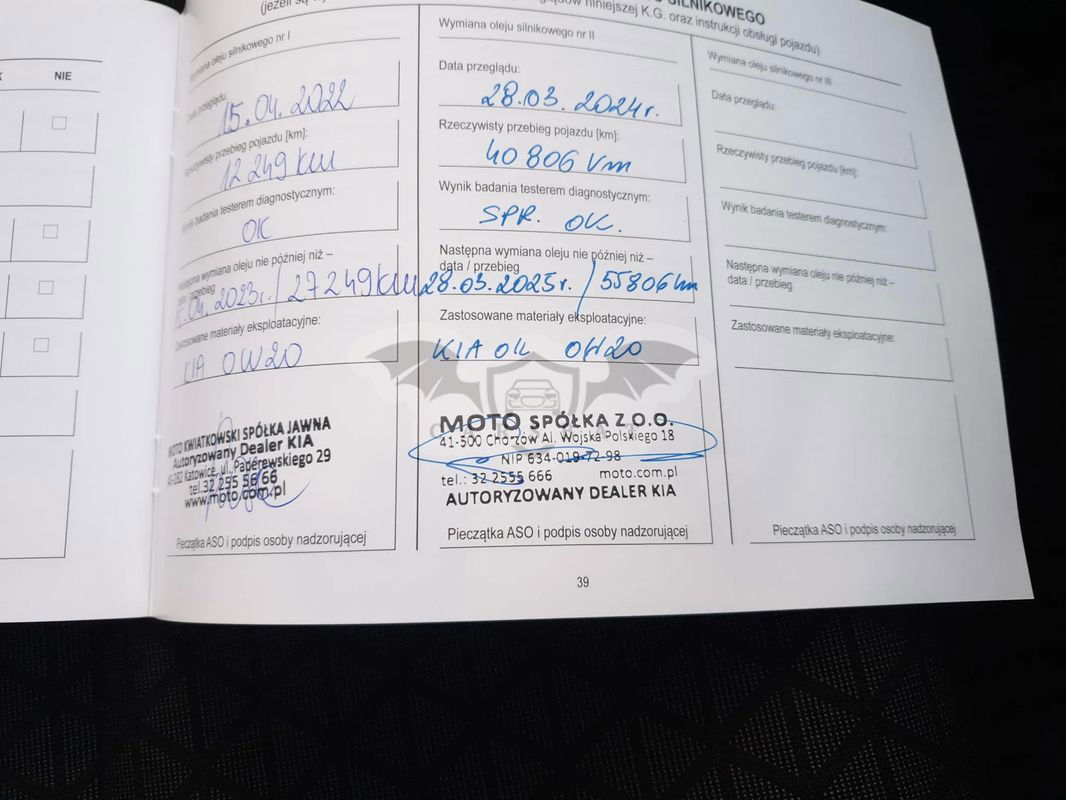 SILNIKOWEGO
(jeżeli są
niniejszej K.G. oraz instrukcji obsługi pojazdu)
K NIE
Wymiana oleju silnikowego nr I
Data przeglądu:
15.04.2022
Rzeczywisty przebieg pojazdu [km]:
12 249 km
Wynik badania testerem diagnostycznym:
OK
Następna wymiana oleju nie później niż –
data / przebieg
04.2023r. / 27 249 km
Zastosowane materiały eksploatacyjne:
KIA 0W20
MOTO KWIATKOWSKI SPÓŁKA JAWNA
Autoryzowany Dealer KIA
Katowice, ul. Paderewskiego 29
tel.32 255 56 66
www.moto.com.pl
Pieczątka ASO i podpis osoby nadzorującej
Wymiana oleju silnikowego nr II
Data przeglądu:
28.03.2024r.
Rzeczywisty przebieg pojazdu [km]:
40 806 km
Wynik badania testerem diagnostycznym:
SPR. OK.
Następna wymiana oleju nie później niż –
data / przebieg
28.03.2025r. / 55806 km
Zastosowane materiały eksploatacyjne:
KIA OIL 0W20
MOTO SPÓŁKA Z O.O.
41-500 Chorzów Al. Wojska Polskiego 18
NIP 634-019-72-98
tel.: 32 2555 666 moto.com.pl
AUTORYZOWANY DEALER KIA
Pieczątka ASO i podpis osoby nadzorującej
Wymiana oleju silnikowego nr III
Data przeglądu:
Rzeczywisty przebieg pojazdu [km]:
Wynik badania testerem diagnostycznym:
Następna wymiana oleju nie później niż –
data / przebieg
Zastosowane materiały eksploatacyjne:
Pieczątka ASO i podpis osoby nadzorującej
39